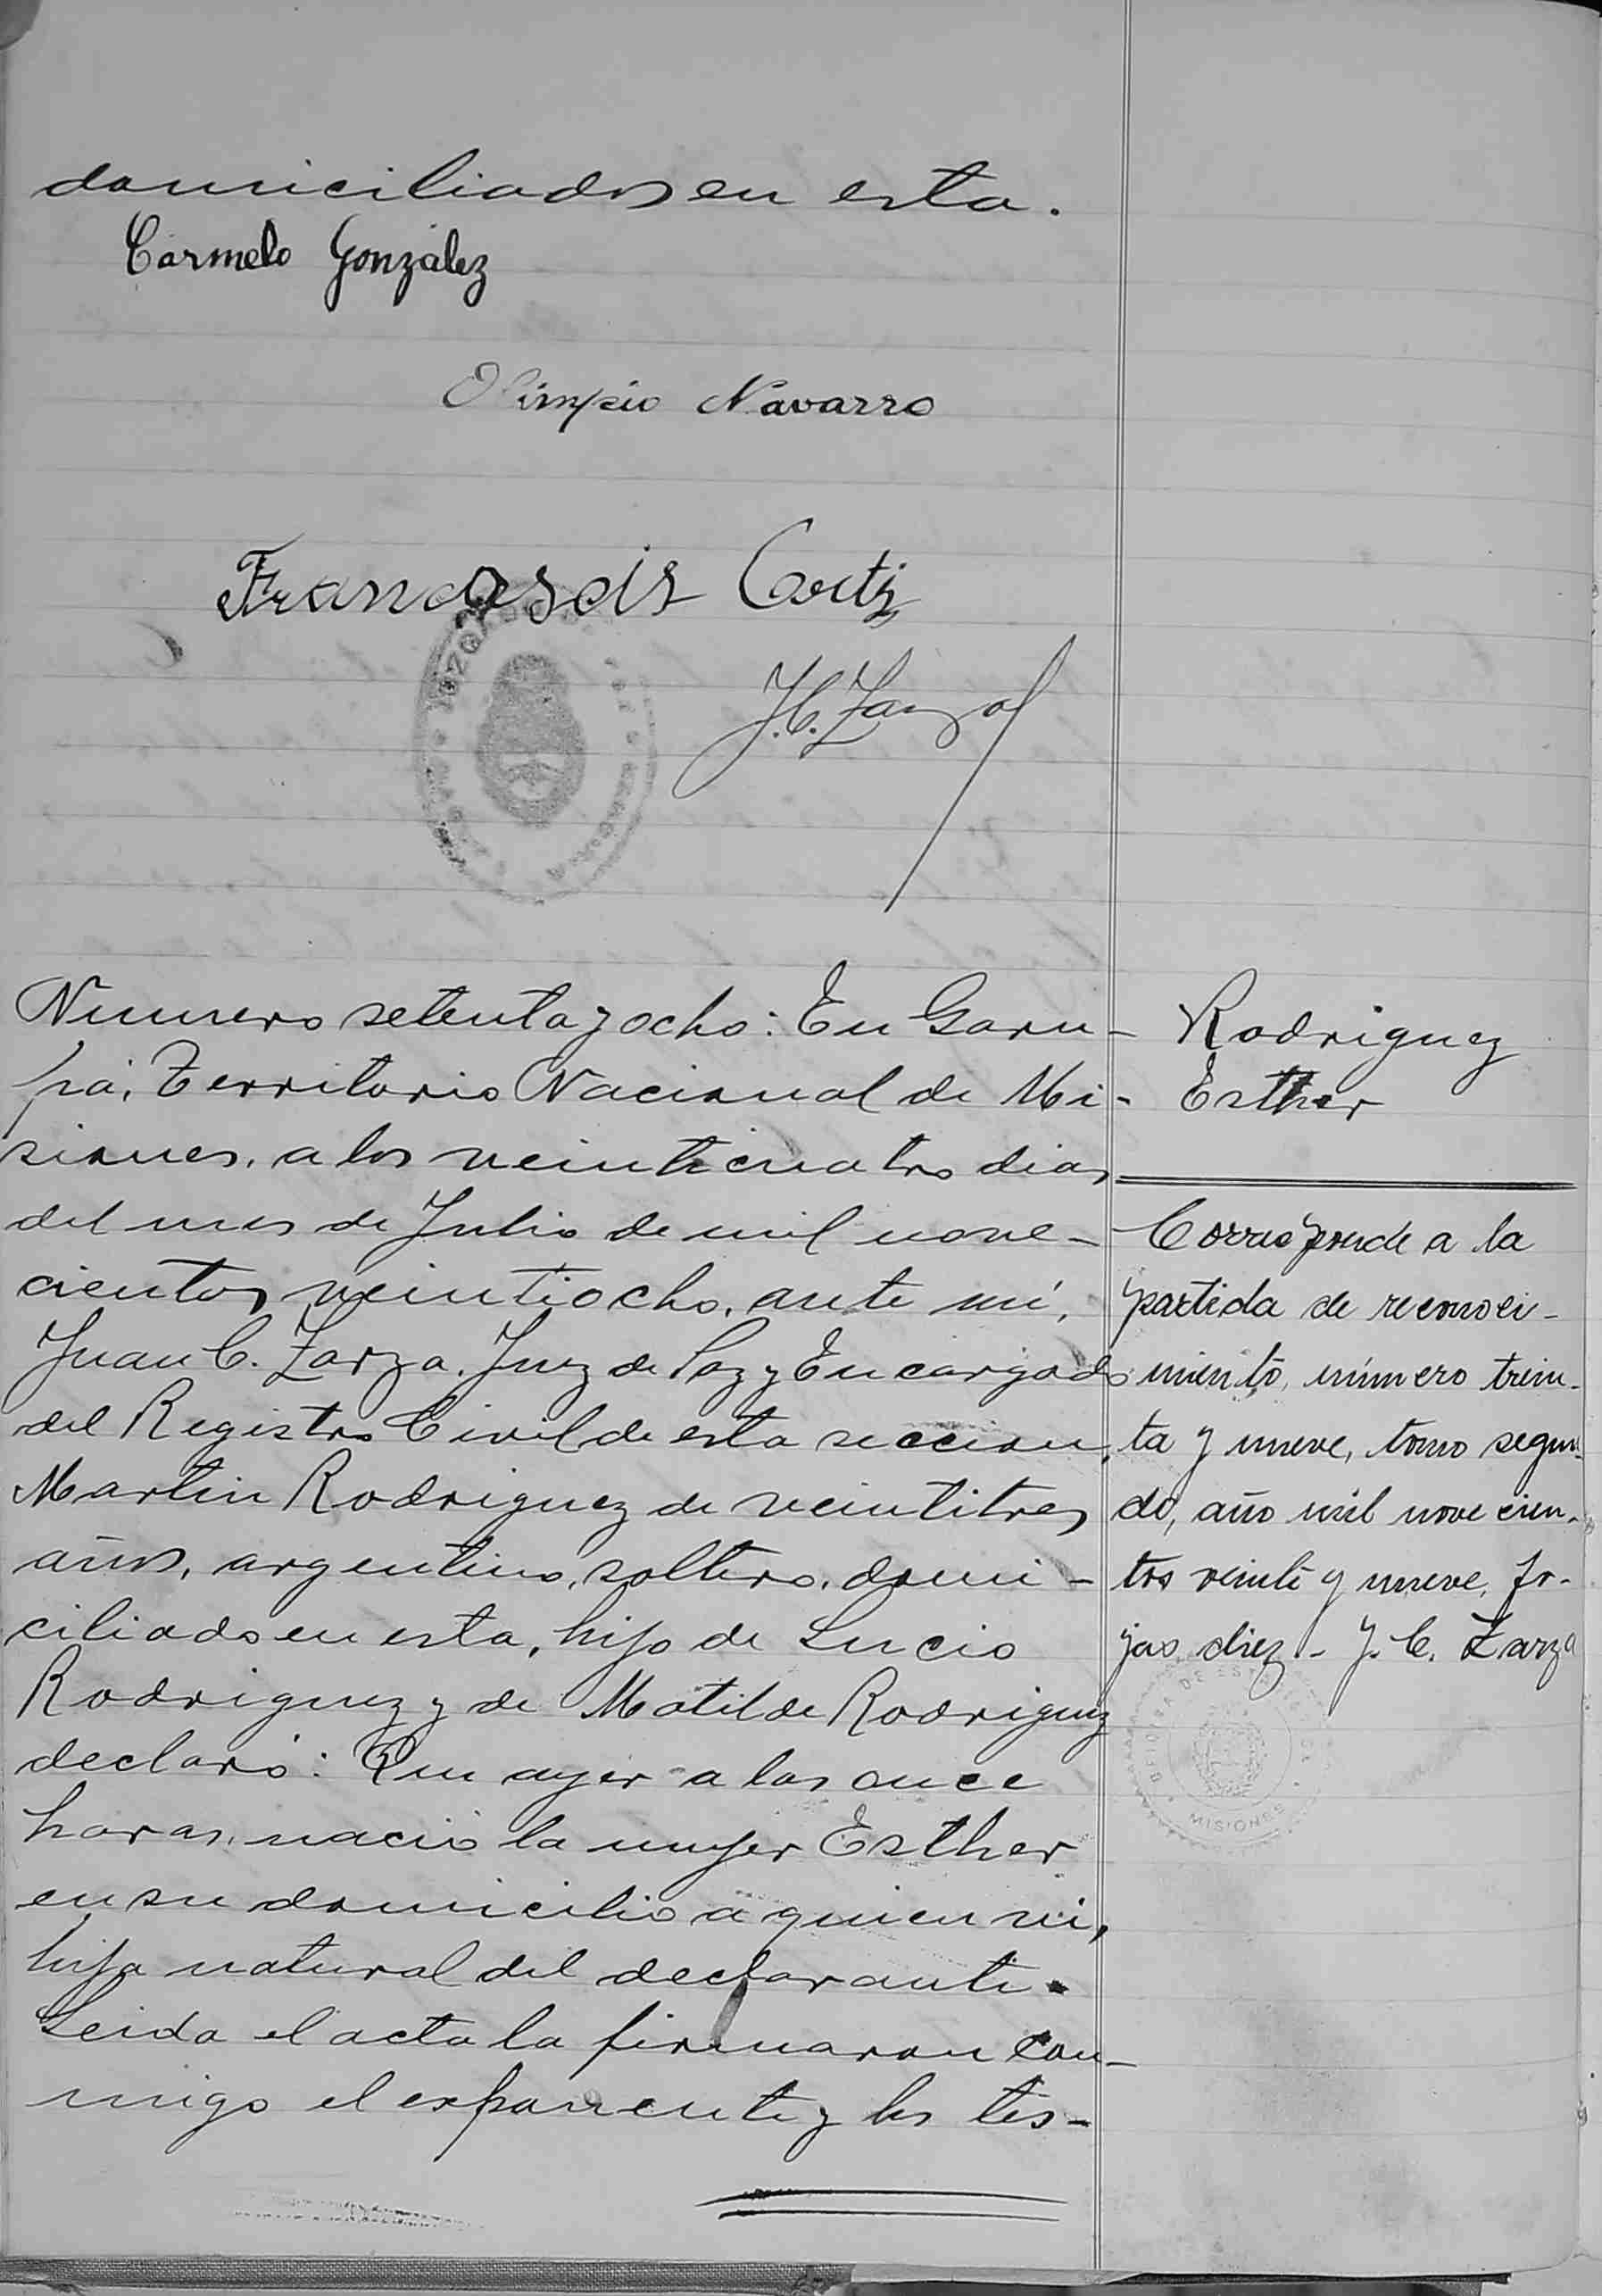 domiciliados en esta.
Carmelo González
Olimpio Navarro
Cortiz
J. C. Zarza
Numero setenta y ocho: En Garu-
pá, Territorio Nacional de Mi-
siones, a los veinticuatro dias
del mes de Julio de mil nove-
cientos veintiocho, ante mí,
Juan C. Zarza, Juez de Paz y Encargado
del Registro Civil de esta seccion,
Martin Rodriguez de veintitres
años, argentino, soltero, domi-
ciliado en esta, hijo de Lucio
Rodriguez y de Matilde Rodriguez
declaró: Que ayer a las once
horas, nació la mujer Esther
en su domicilio a quien vi,
hija natural del declarante.
Leida el acta la firmaron con-
migo el exponente y los tes-
Rodriguez
Esther
Corresponde a la
partida de reconoci-
miento, número trein-
ta y nueve, tomo segun-
do, año mil novecien-
tos veinte y nueve, fo-
jas diez - J. C. Zarza
MISIONES